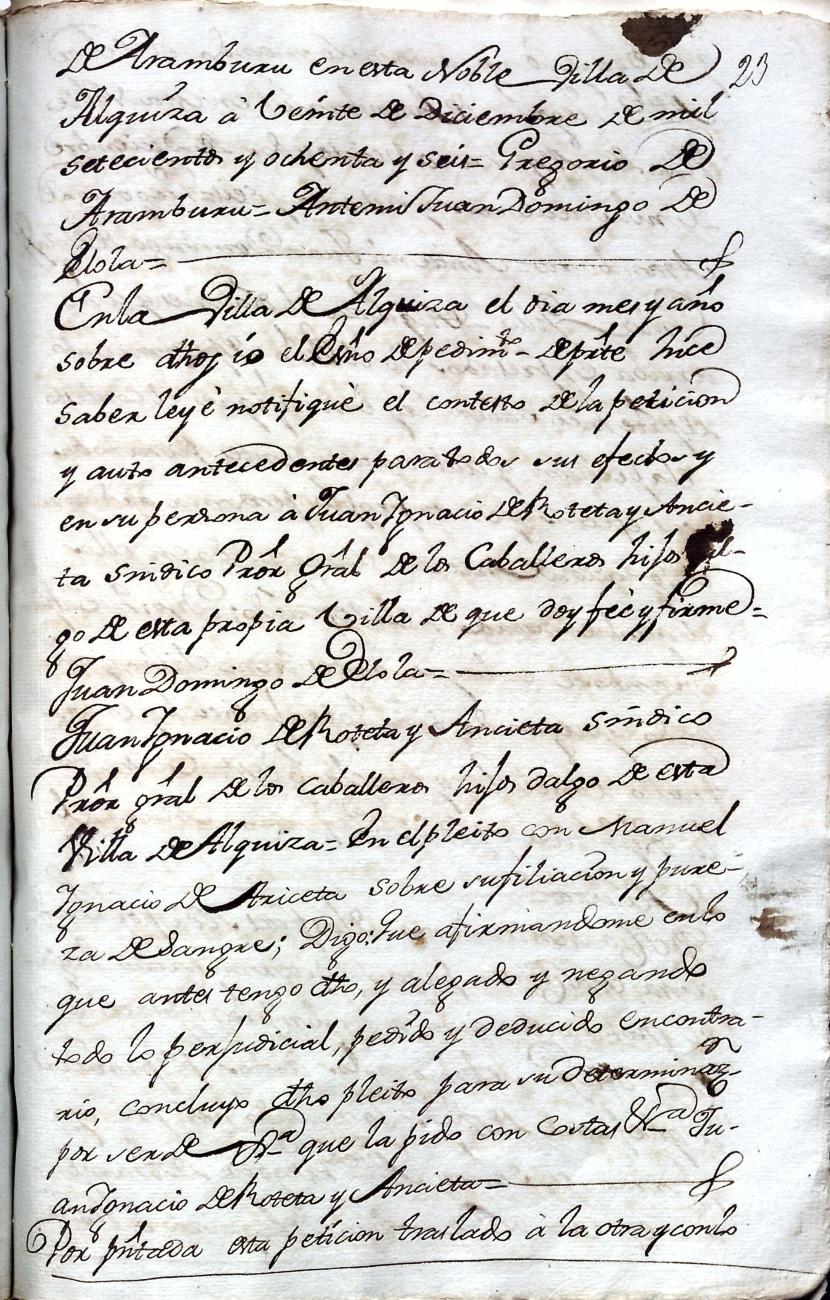 De Aramburu en esta Noble Villa De 23
Alquiza à Veinte De Diciembre De mil
setecientos y ochenta y seis= Gregorio De
Aramburu= Antemi Juan Domingo De
Elola=
Enla Villa De Alquiza el dia mes y año
sobre dhos io el Esno Depedimto Deprte hice
saber ley è notifiquè el contesto Dela peticion
y auto antecedentes para todos sus efectos y
en su persona à Juan Ignacio De Roteta y Ancie-
ta Sindico Pror Gral De los Caballeros hijos dal-
go De esta propia Villa De que doy feè y firmè=
Juan Domingo De Elola=
Juan Ignacio De Roteta y Ancieta Sindico
Pror gral De los Caballeros hijos dalgo De esta
Villa De Alquiza= En el pleito con Manuel
Ignacio De Ariceta sobre su filiacion y pure-
za De Sangre; Digo: Que afirmandome enlo
que antes tengo dho, y alegado y negando
todo lo perjudicial, pedido y deducido encontra-
rio, concluyo dho pleito para su determinaz.n
por ser De Jª que la pido con Costas Jª Ju-
an Ignacio De Roteta y Ancieta=
Por pntada esta peticion traslado à la otra y conlo